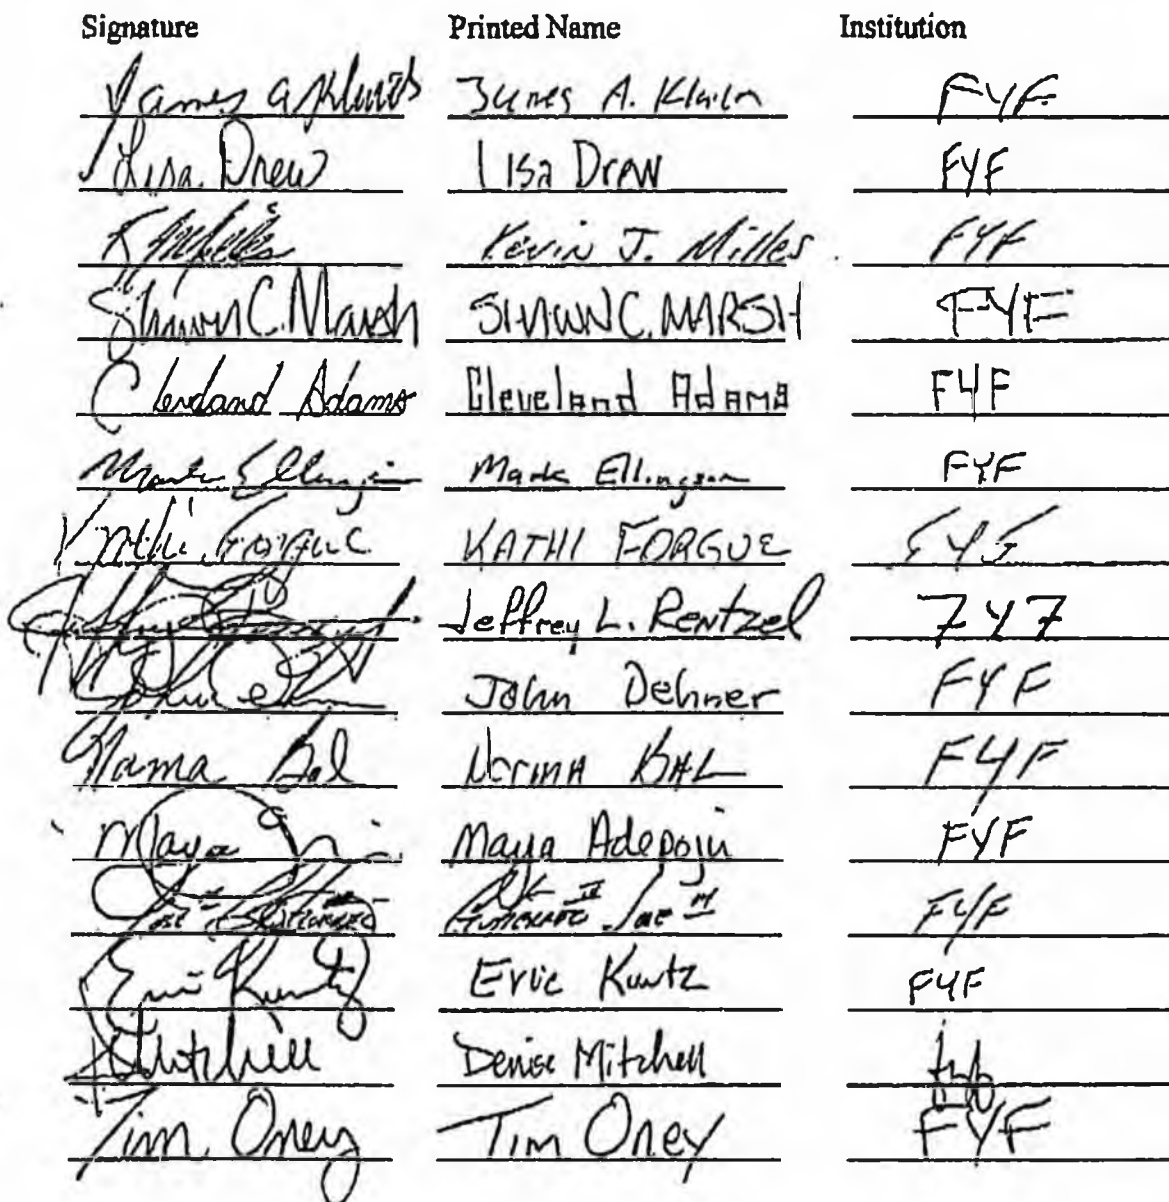 Signature Printed Name Institution
James A. James A. FYF
Lisa Drew Lisa Drew FYF
K Kevin J. Milles FYF
Shawn C. Marsh SHAWN C. MARSH FYF
Cleveland Adams Cleveland Adams FYF
Mark Ellingson Mark Ellingson FYF
Kathi Forgue KATHI FORGUE FYF
Jeffrey L. Rentzel FYF
John Dehner FYF
Norma Bal Norma BAL FYF
Maya Maya Adepoju FYF
FYF
Eric Kuntz Eric Kuntz FYF
Mitchell Denise Mitchell fyf
Tim Oney Tim Oney FYF